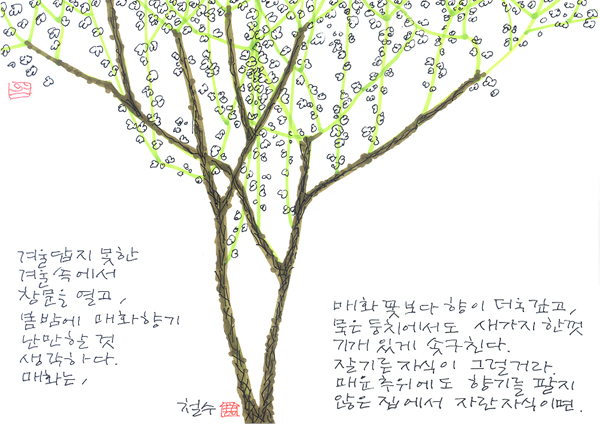 겨울답지 못한
겨울 속에서
창문을 열고,
봄밤에 매화향기
난만한 것
생각하다.
매화는,
매화 꽃보다 향이 더욱 깊고,
묵은 둥치에서도 새가지 한껏
기개 있게 솟구친다.
잘 기른 자식이 그럴거라.
매운 추위에도 향기를 팔지
않은 집에서 자란 자식이면.
철수